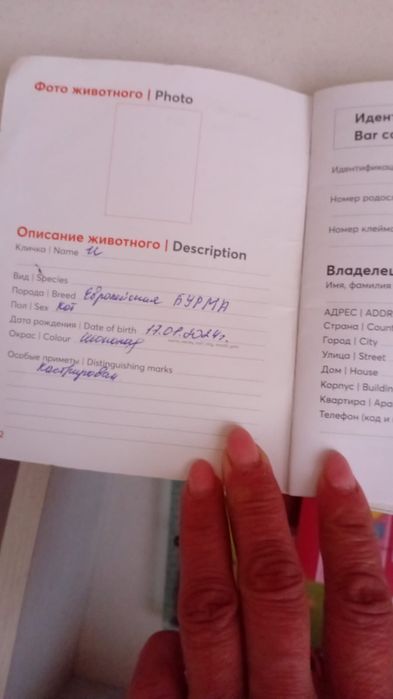 Фото животного | Photo
Описание животного | Description
Кличка | Name И
Вид | Species
Порода | Breed Европейская БУРМА
Пол | Sex Кот
Дата рождения | Date of birth 17.08.2024г.
Окрас | Colour Шоколад
Особые приметы | Distinguishing marks
Кастрирован
2
Иден
Bar co
Идентификац
Номер родос
Номер клейм
Владелец
Имя, фамилия
АДРЕС | ADDR
Страна | Coun
Город | City
Улица | Street
Дом | House
Корпус | Buildin
Квартира | Apa
Телефон (код и